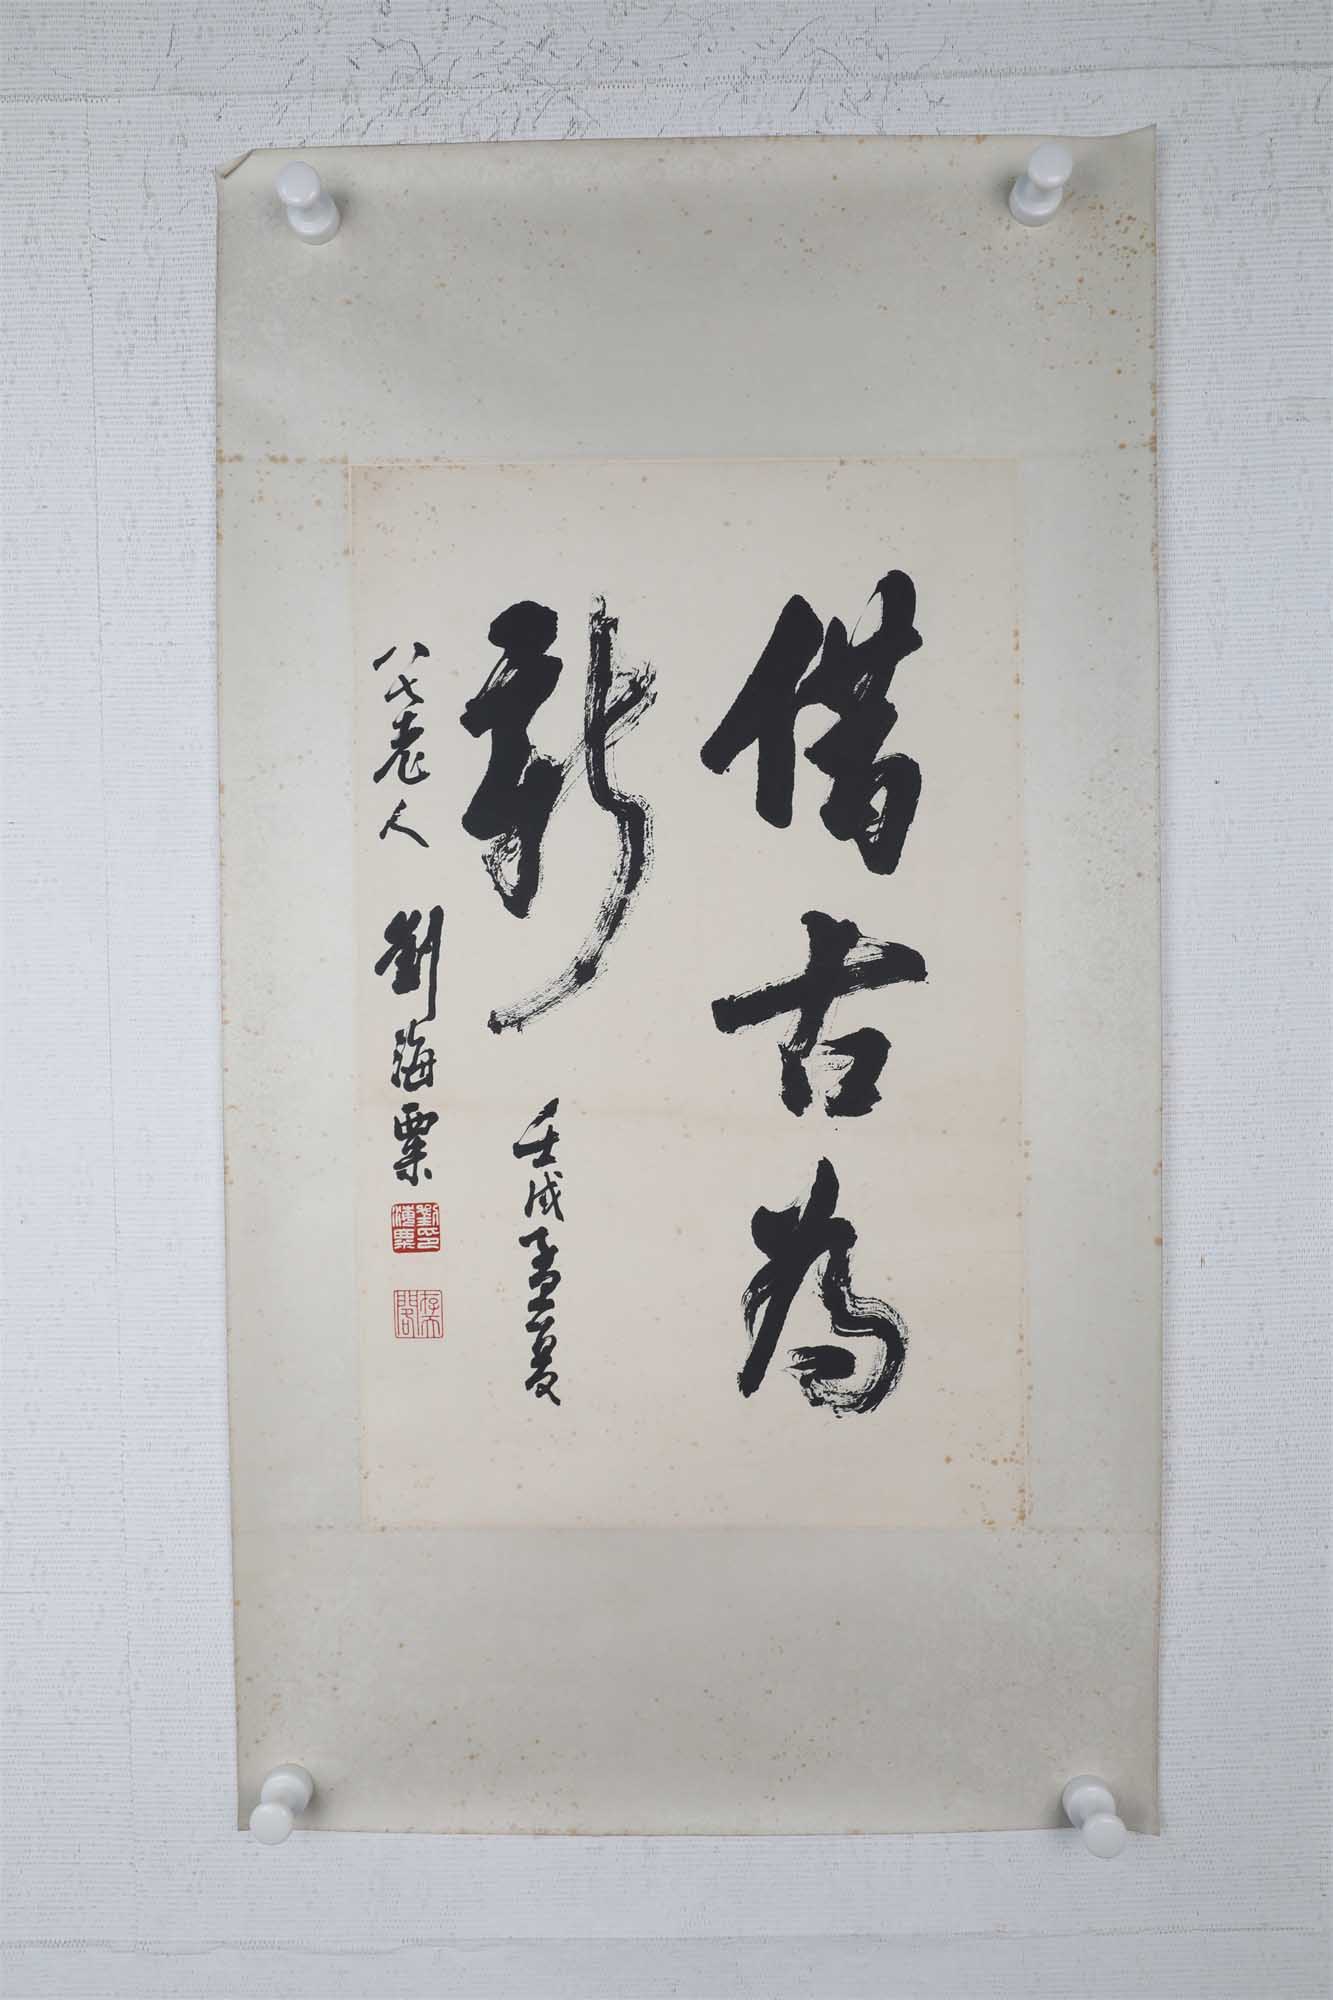 借古為
新
壬戌孟夏
八七老人 劉海粟
劉海粟印
存天閣